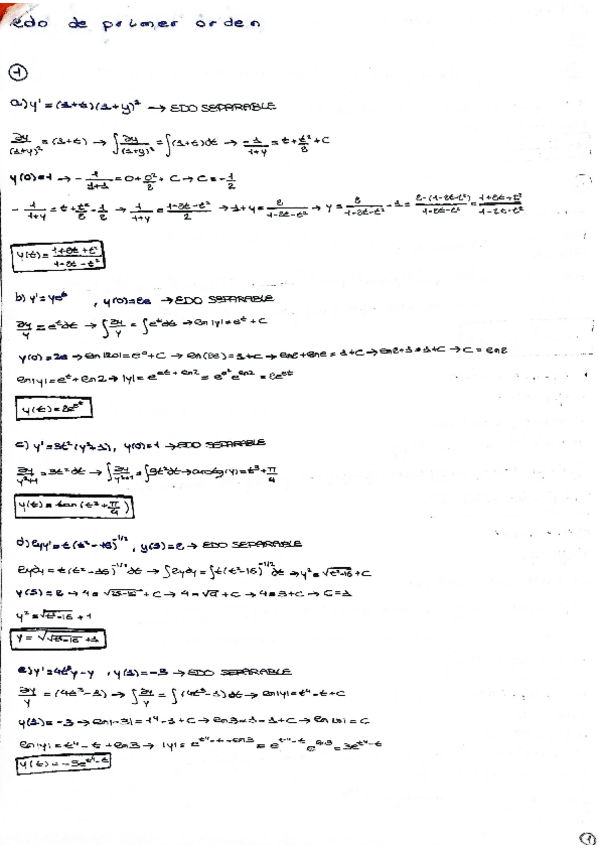 edo de primer orden
1
a) y' = (1+t)(1+y)² → EDO SEPARABLE
∂y/(1+y)² = (1+t) → ∫ ∂y/(1+y)² = ∫(1+t)dt → -1/(1+y) = t + t²/2 + C
y(0)=1 → -1/(1+1) = 0 + 0²/2 + C → C = -1/2
-1/(1+y) = t + t²/2 - 1/2 → 1/(1+y) = (1-2t-t²)/2 → 1+y = 2/(1-2t-t²) → y = 2/(1-2t-t²) - 1 = (2-(1-2t-t²))/(1-2t-t²) = (1+2t+t²)/(1-2t-t²)
y(t) = (1+2t+t²)/(1-2t-t²)
b) y' = ye^t , y(0)=2e → EDO SEPARABLE
∂y/y = e^t dt → ∫ ∂y/y = ∫ e^t dt → ln|y| = e^t + C
y(0) = 2e → ln|2e| = e^0 + C → ln(2e) = 1+C → ln2 + lne = 1+C → ln2+1 = 1+C → C = ln2
ln|y| = e^t + ln2 → |y| = e^(e^t + ln2) = e^(e^t) e^(ln2) = 2e^(e^t)
y(t) = 2e^(e^t)
c) y' = 3t²(y²+1), y(0)=1 → EDO SEPARABLE
∂y/(y²+1) = 3t² dt → ∫ ∂y/(y²+1) = ∫ 3t² dt → arctg(y) = t³ + π/4
y(t) = tan(t³ + π/4)
d) 2yy' = t(t²-16)^(-1/2), y(5)=2 → EDO SEPARABLE
2y∂y = t(t²-16)^(-1/2) dt → ∫2y∂y = ∫t(t²-16)^(-1/2) dt → y² = √(t²-16) + C
y(5) = 2 → 4 = √(25-16) + C → 4 = √9 + C → 4 = 3+C → C = 1
y² = √(t²-16) + 1
y = √(√(t²-16) + 1)
e) y' = 4t³y-y , y(1)=-3 → EDO SEPARABLE
∂y/y = (4t³-1) → ∫ ∂y/y = ∫(4t³-1)dt → ln|y| = t⁴-t+C
y(1) = -3 → ln|-3| = 1⁴-1+C → ln3 = 1-1+C → ln|3| = C
ln|y| = t⁴-t+ln3 → |y| = e^(t⁴-t+ln3) = e^(t⁴-t) e^(ln3) = 3e^(t⁴-t)
y(t) = -3e^(t⁴-t)
1